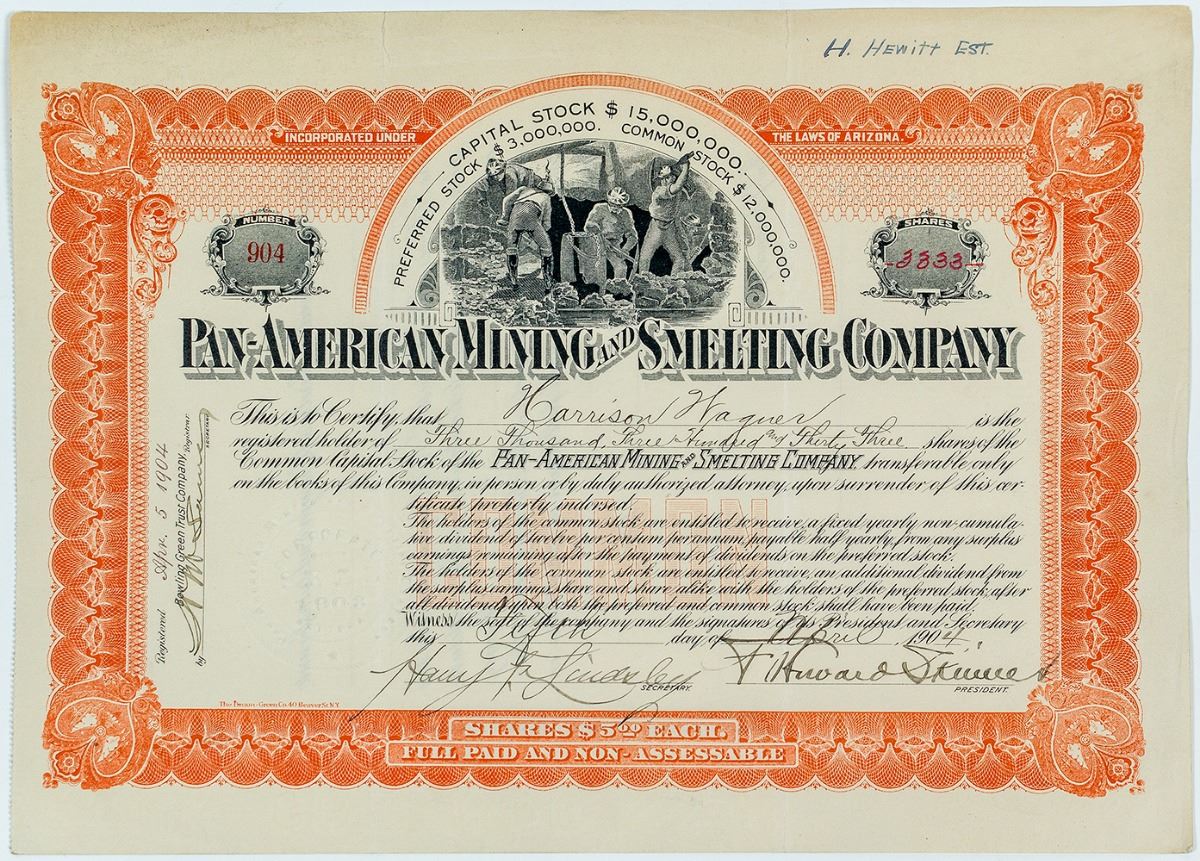 H. HEWITT EST.
CAPITAL STOCK $ 15,000,000.
PREFERRED STOCK $ 3,000,000. COMMON STOCK $ 12,000,000.
INCORPORATED UNDER THE LAWS OF ARIZONA
NUMBER
904
SHARES
3333
PAN-AMERICAN MINING AND SMELTING COMPANY
This is to Certify, that Harrison Wagner is the
registered holder of Three Thousand Three Hundred and Thirty Three shares of the
Common Capital Stock of the PAN-AMERICAN MINING AND SMELTING COMPANY transferable only
on the books of this Company, in person or by duly authorized attorney, upon surrender of this cer-
tificate properly indorsed.
The holders of the common stock are entitled to receive, a fixed yearly non-cumula-
tive dividend of twelve per centum per annum, payable half yearly, from any surplus
earnings remaining after the payment of dividends on the preferred stock.
The holders of the common stock are entitled to receive, an additional dividend from
the surplus earnings share and share alike with the holders of the preferred stock, after
all dividends upon both the preferred and common stock shall have been paid.
COMMON
Witness the seal of the company and the signatures of its President and Secretary
this Fifth day of April 1904.
Harry F. Lindsley
SECRETARY.
F. Howard
PRESIDENT.
Registered Apr. 5 1904
Bowling Green Trust Company, Registrar
by
SECRETARY
40 Beaver St. N.Y.
SHARES $5.00 EACH.
FULL PAID AND NON-ASSESSABLE